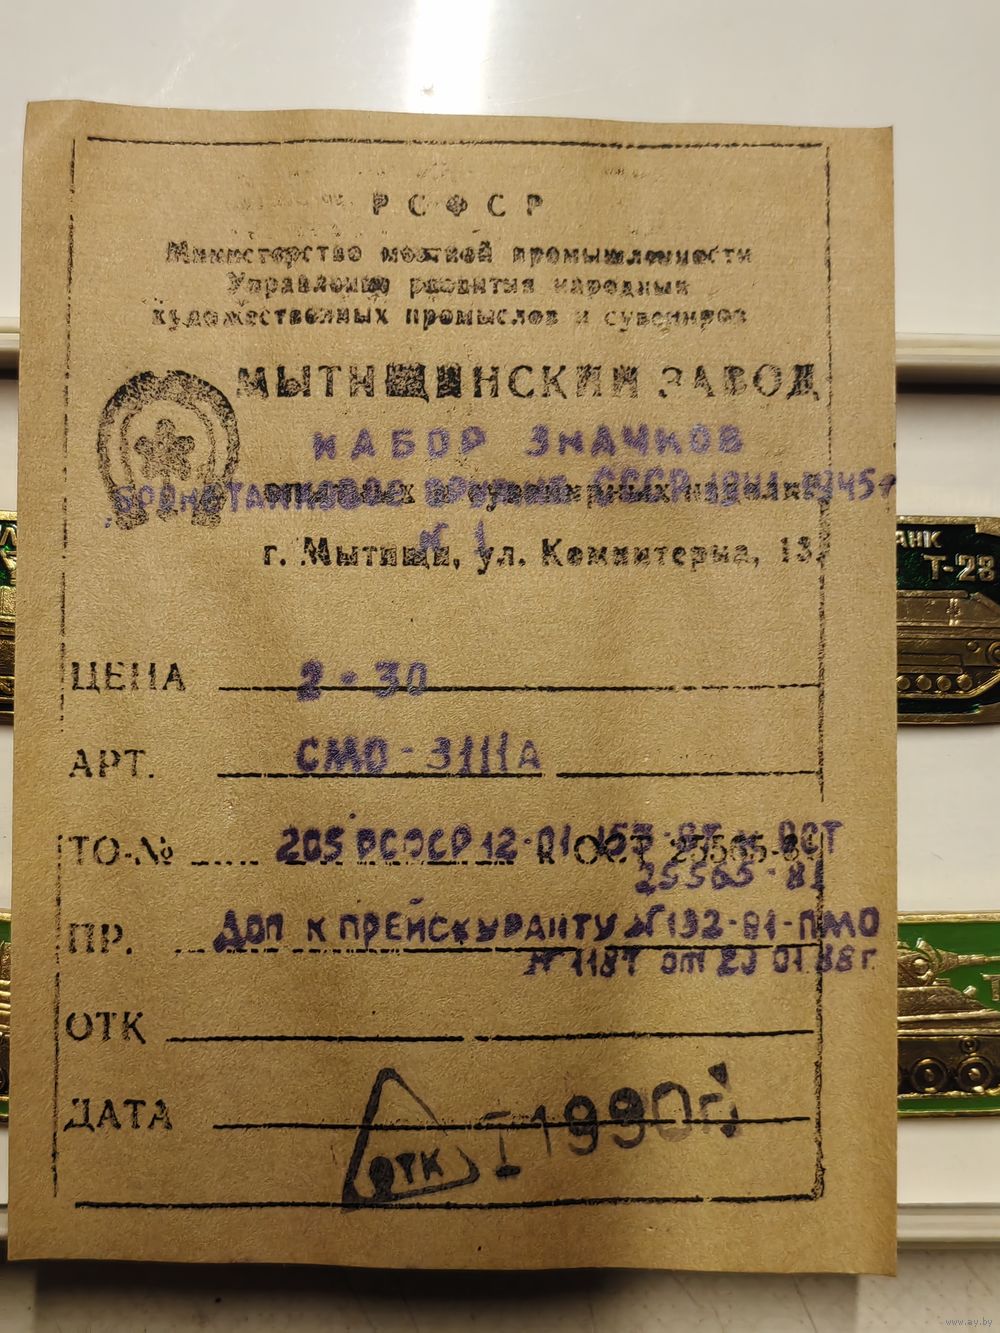 РСФСР
Министерство местной промышленности
Управление развития народных
художественных промыслов и сувениров
МЫТИЩИНСКИЙ ЗАВОД
НАБОР ЗНАЧКОВ
СССР 1941-1945г
№ 1
г. Мытищи, ул. Коминтерна, 13
ЦЕНА 2-30
АРТ. СМО-3111А
ТО-№ 205 РСФСР 12-01 ОСТ
25565-81
ПР. ДОП К ПРЕЙСКУРАНТУ №132-81-ПМО
№ 118Т от 20 01 88г.
ОТК
ДАТА
ОТК I 1990
АНК
Т-28
www.ay.by